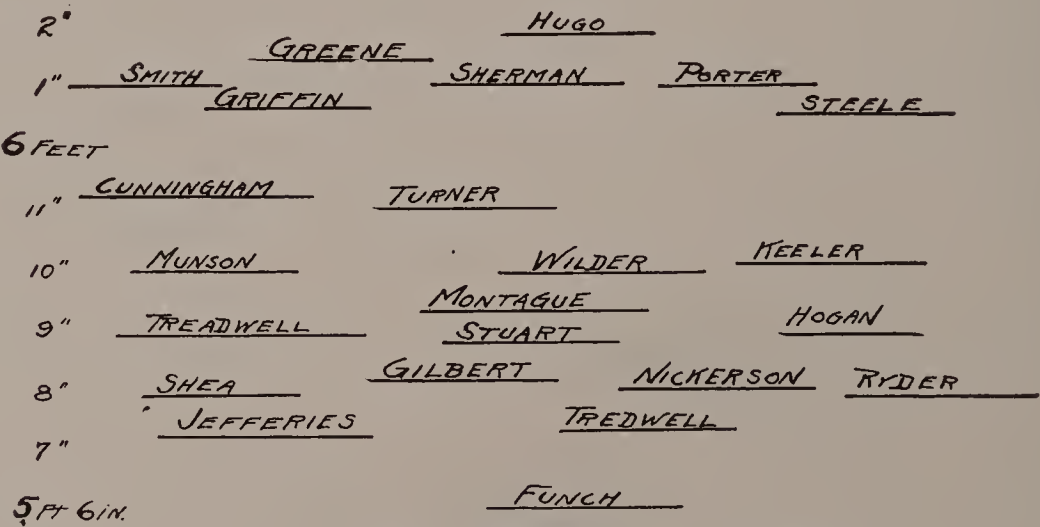 2" HUGO
GREENE
1" SMITH SHERMAN PORTER
GRIFFIN STEELE
6 FEET
11" CUNNINGHAM TURNER
10" MUNSON WILDER KEELER
MONTAGUE
9" TREADWELL STUART HOGAN
GILBERT
8" SHEA NICKERSON RYDER
JEFFERIES TREDWELL
7"
5 FT 6 IN. FUNCH